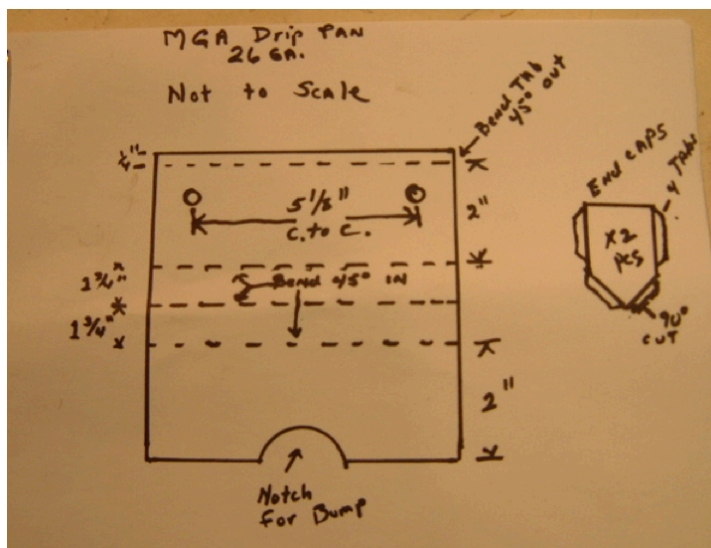 MGA Drip PAN
26 GA.
Not to Scale
Bend TAb
45° out
1/4"
5 1/8"
C. to C.
2"
1 3/4"
Bend 45° IN
1 3/4"
2"
Notch
For Bump
End CAPS
4 TAbs
X2
pcs
90°
CUT